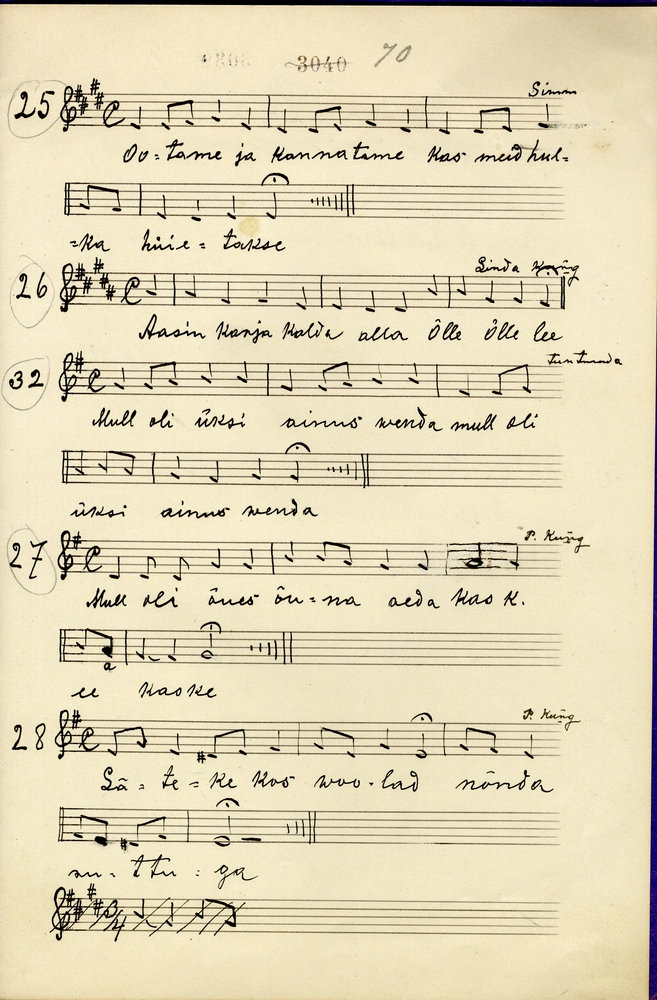 3040 70
25 Simm
Oo = tame ja kannatame kas meid hul=
=ka hüie = takse
26 Linda Küng
Aasin karja kalda alla Õlle Õlle lee
32 tuntmada
Mull oli üksi ainus wenda mull oli
üksi ainus wenda
27 P. Küng
Mull oli õues õu=na aeda kas K.
a
ee kaske
28 P. Küng
Lä = te = ke kos woo-lad nõnda
ru = ttu : ga
3/4